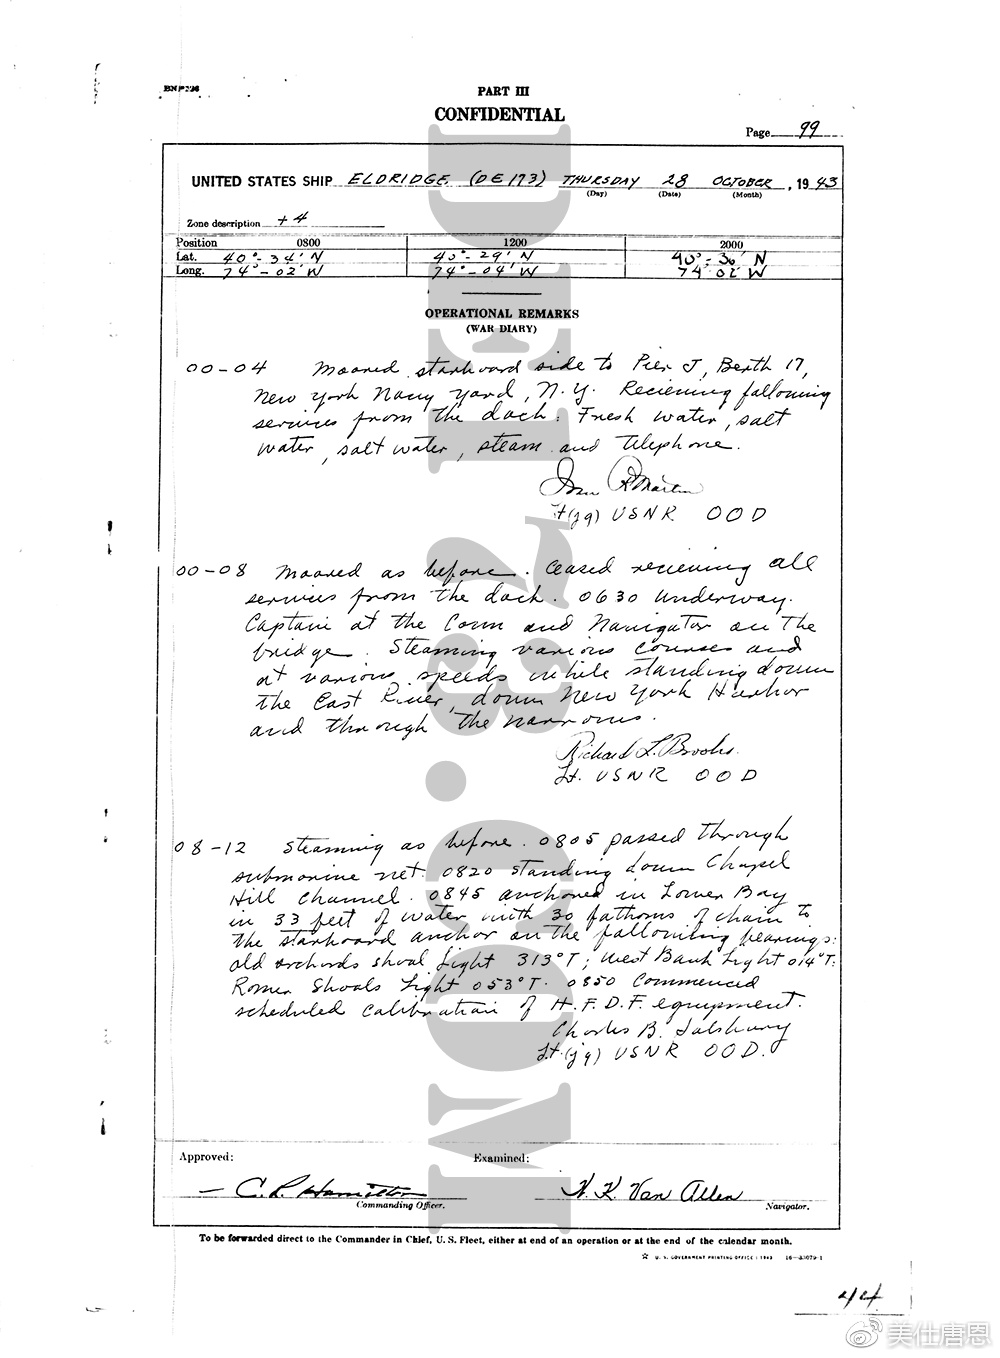 BNP 226
PART III
CONFIDENTIAL
Page 99
UNITED STATES SHIP ELDRIDGE (DE 173) THURSDAY 28 OCTOBER, 1943
(Day) (Date) (Month)
Zone description +4
Position 0800 1200 2000
Lat. 40°-34' N 40°-29' N 40°-30' N
Long. 74°-02' W 74°-04' W 74 02' W
OPERATIONAL REMARKS
(WAR DIARY)
00-04 Moored starboard side to Pier J, Berth 17,
New York Navy Yard, N.Y. Recieving following
services from the dock: Fresh water, salt
water, salt water, steam and telephone.
Martin
Lt(jg) USNR OOD
00-08 Moored as before. Ceased recieving all
services from the dock. 0630 Underway.
Captain at the Conn and Navigator on the
bridge. Steaming various courses and
at various speeds while standing down
the East River, down New York Harbor
and through the Narrows.
Richard L. Brooks.
Lt. USNR OOD
08-12 Steaming as before. 0805 passed through
submarine net. 0820 standing down Chapel
Hill Channel. 0845 anchored in Lower Bay
in 33 feet of water with 30 fathoms of chain to
the starboard anchor on the following bearings:
old orchards shoal Light 313°T; West Bank Light 014°T:
Romer Shoals Light 053°T. 0850 Commenced
scheduled calibration of H.F.D.F. equipment.
Charles B. Salsbury
Lt.(jg) USNR OOD.
Approved: Examined:
C. R. Hamilton N. K. Van Allen
Commanding Officer. Navigator.
To be forwarded direct to the Commander in Chief, U. S. Fleet, either at end of an operation or at the end of the calendar month.
☆ U. S. GOVERNMENT PRINTING OFFICE: 1943 16—33079-1
@美仕唐恩